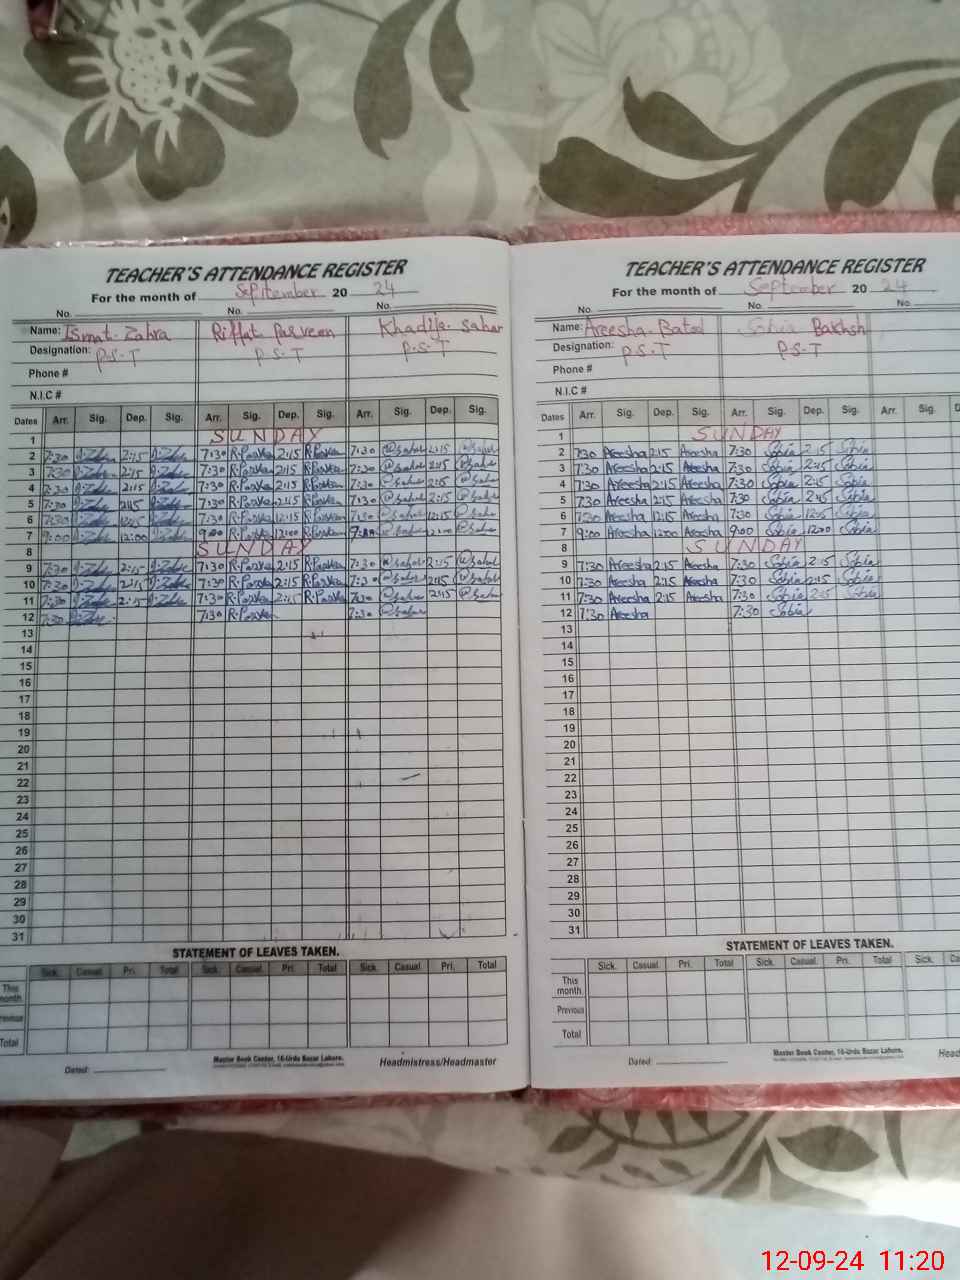 TEACHER'S ATTENDANCE REGISTER
For the month of September 20 24
No. No. No.
Name: Ismat. Zahra Riffat Parveen Khadija. Sahar
Designation: P.S.T P.S.T P.S.T
Phone #
N.I.C #
Dates Arr. Sig. Dep. Sig. Arr. Sig. Dep. Sig. Arr. Sig. Dep. Sig.
1 SUNDAY
2 7:30 2:15 7:30 R.Parveen 2:15 R.Parveen 7:30 @Sahar 2:15 @Sahar
3 7:30 2:15 7:30 R.Parveen 2:15 R.Parveen 7:30 @Sahar 2:15 @Sahar
4 7:30 2:15 7:30 R.Parveen 2:15 R.Parveen 7:30 @Sahar 2:15 @Sahar
5 7:30 2:15 7:30 R.Parveen 2:15 R.Parveen 7:30 @Sahar 2:15 @Sahar
6 7:30 12:15 7:30 R.Parveen 12:15 R.Parveen 7:30 @Sahar 12:15 @Sahar
7 9:00 12:00 9:00 R.Parveen 12:00 R.Parveen @Sahar 12:00 @Sahar
8 SUNDAY
9 7:30 2:15 7:30 R.Parveen 2:15 R.Parveen 7:30 @Sahar 2:15 @Sahar
10 7:30 2:15 7:30 R.Parveen 2:15 R.Parveen 7:30 @Sahar 2:15 @Sahar
11 7:30 2:15 7:30 R.Parveen 2:15 R.Parveen 7:30 @Sahar 2:15 @Sahar
12 7:30 7:30 R.Parveen 7:30 @Sahar
13
14
15
16
17
18
19
20
21
22
23
24
25
26
27
28
29
30
31
STATEMENT OF LEAVES TAKEN.
Sick. Casual. Pri. Total Sick. Casual. Pri. Total Sick. Casual. Pri. Total
This month
Previous
Total
Master Book Center, 16-Urdu Bazar Lahore.
Dated: Headmistress/Headmaster
TEACHER'S ATTENDANCE REGISTER
For the month of September 20 24
No. No. No.
Name: Areesha. Batool Sobia Bakhsh
Designation: P.S.T P.S.T
Phone #
N.I.C #
Dates Arr. Sig. Dep. Sig. Arr. Sig. Dep. Sig. Arr. Sig.
1 SUNDAY
2 7:30 Areesha 2:15 Areesha 7:30 Sobia 2:15 Sobia
3 7:30 Areesha 2:15 Areesha 7:30 Sobia 2:15 Sobia
4 7:30 Areesha 2:15 Areesha 7:30 Sobia 2:15 Sobia
5 7:30 Areesha 2:15 Areesha 7:30 Sobia 2:15 Sobia
6 7:30 Areesha 12:15 Areesha 7:30 Sobia 12:15 Sobia
7 9:00 Areesha 12:00 Areesha 9:00 Sobia 12:00 Sobia
8 SUNDAY
9 7:30 Areesha 2:15 Areesha 7:30 Sobia 2:15 Sobia
10 7:30 Areesha 2:15 Areesha 7:30 Sobia 2:15 Sobia
11 7:30 Areesha 2:15 Areesha 7:30 Sobia 2:15 Sobia
12 7:30 Areesha 7:30 Sobia
13
14
15
16
17
18
19
20
21
22
23
24
25
26
27
28
29
30
31
STATEMENT OF LEAVES TAKEN.
Sick. Casual. Pri. Total Sick. Casual. Pri. Total Sick.
This month
Previous
Total
Master Book Center, 16-Urdu Bazar Lahore.
Dated:
12-09-24 11:20